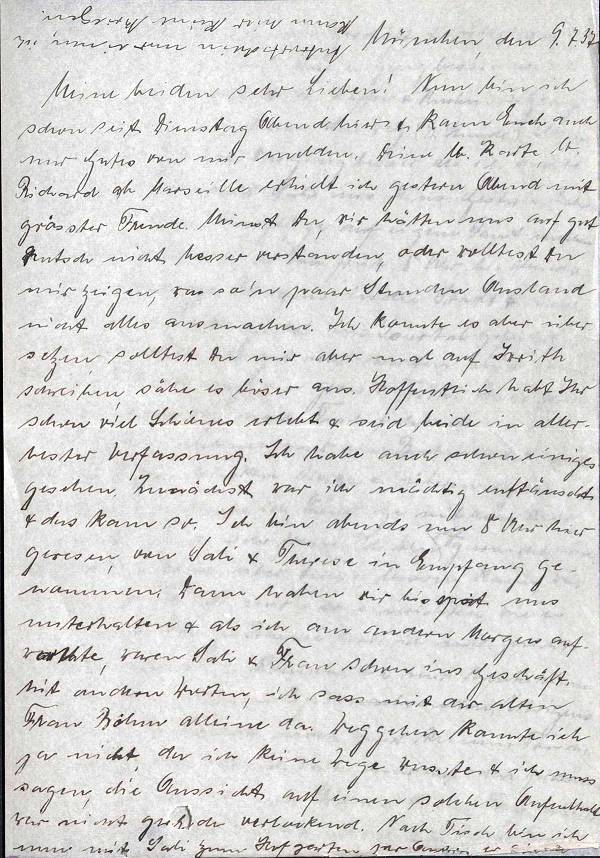 München, den 9.7.37
Meine beiden sehr Lieben! Nun bin ich
schon seit Dienstag Abend hier & kann Euch auch
nur Gutes von mir melden. Deine lb. Karte lb.
Richard ab Marseille erhielt ich gestern Abend mit
grösster Freude. Meinst Du, wir hätten uns auf gut
deutsch nicht besser verstanden, oder wolltest Du
mir zeigen, was so'n paar Stunden Ausland
nicht alles ausmachen. Ich konnte es aber über
setzen, solltest Du mir aber mal auf Iwrith
schreiben, sähe es böser aus. Hoffentlich habt Ihr
schon viel Schönes erlebt & seid beide in aller-
bester Verfassung. Ich habe auch schon einiges
gesehen. Zunächst war ich mächtig enttäuscht
& das kam so. Ich bin abends um 8 Uhr hier
gewesen, von Sali & Therese in Empfang ge-
nommen. Dann haben wir bis spät uns
unterhalten & als ich am andern Morgen auf-
wachte, waren Sali & Frau schon ins Geschäft.
Mit andern Worten, ich sass mit der alten
Frau Böhm alleine da. Weggehen konnte ich
ja nicht da ich keine Wege wusste & ich muss
sagen, die Aussicht auf einen solchen Aufenthalt
war nicht gerade verlockend. Nach Tisch bin ich
nun mit Sali zum Hofgarten